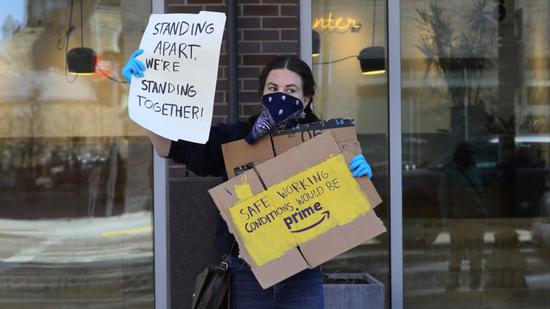 STANDING
APART,
WE'RE
STANDING
TOGETHER!
enter
SAFE WORKING
CONDITIONS WOULD BE
prime